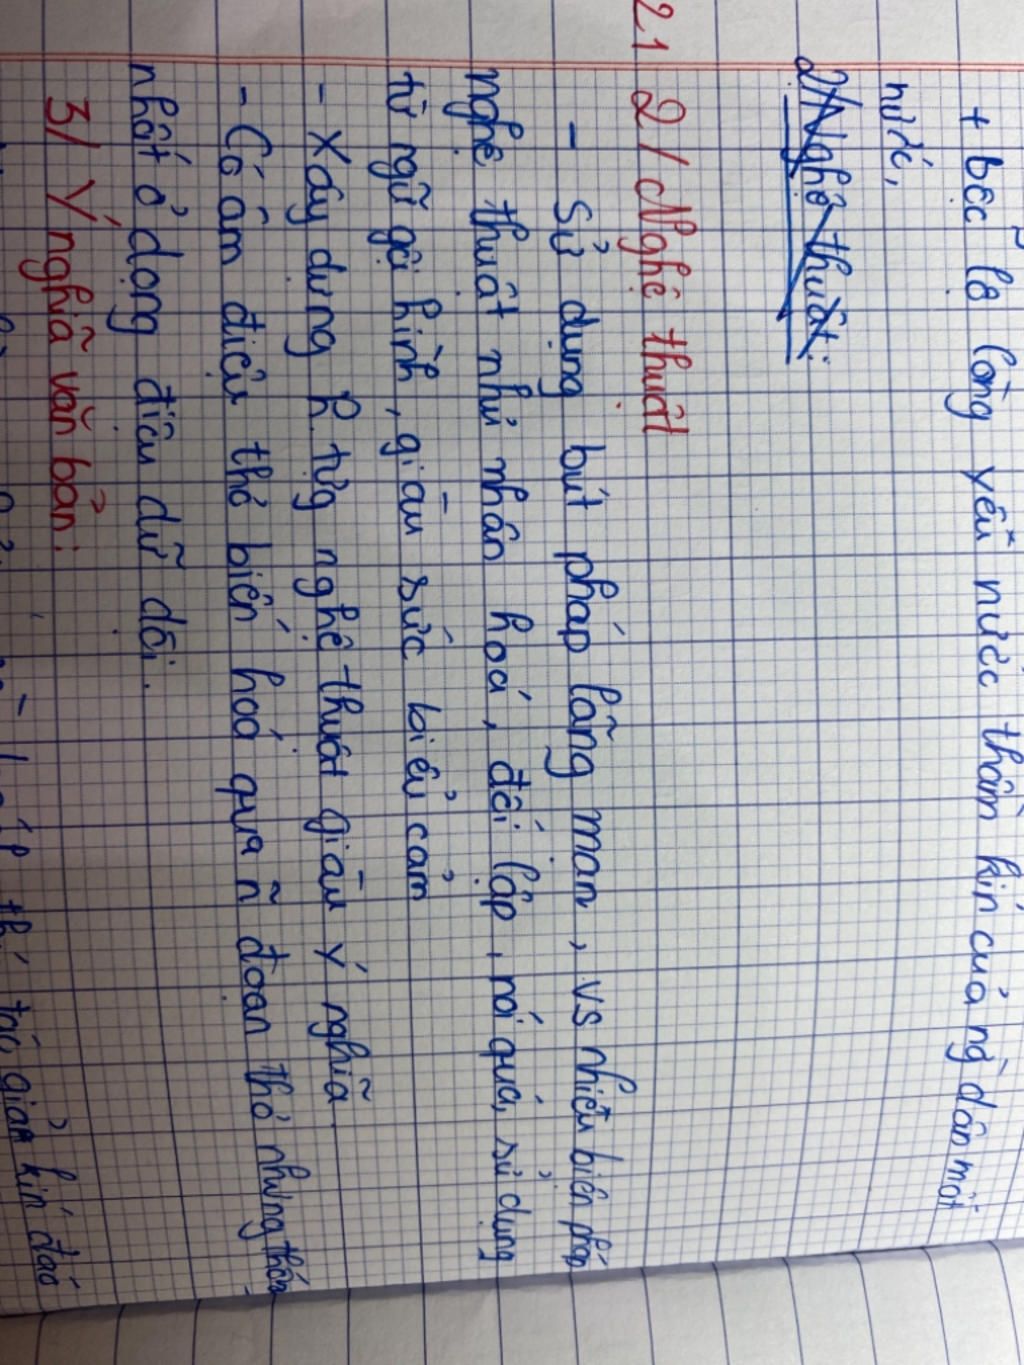 + bộc lộ lòng yêu nước thầm kín của ng dân mất
nước.
2/ Nghệ thuật:
21 2/ Nghệ thuật
- Sử dụng bút pháp lãng mạn, vs nhiều biện pháp
nghệ thuật như nhân hoá, đối lập, nói quá, sử dụng
từ ngữ gợi hình, giàu sức biểu cảm
- Xây dựng h. tựg nghệ thuật giàu ý nghĩa
- Có âm điệu thơ biến hoá qua ñ đoạn thơ nhưng thống
nhất ở dọng điệu dữ dội.
3/ Ý nghĩa văn bản:
tác giả kín đáo